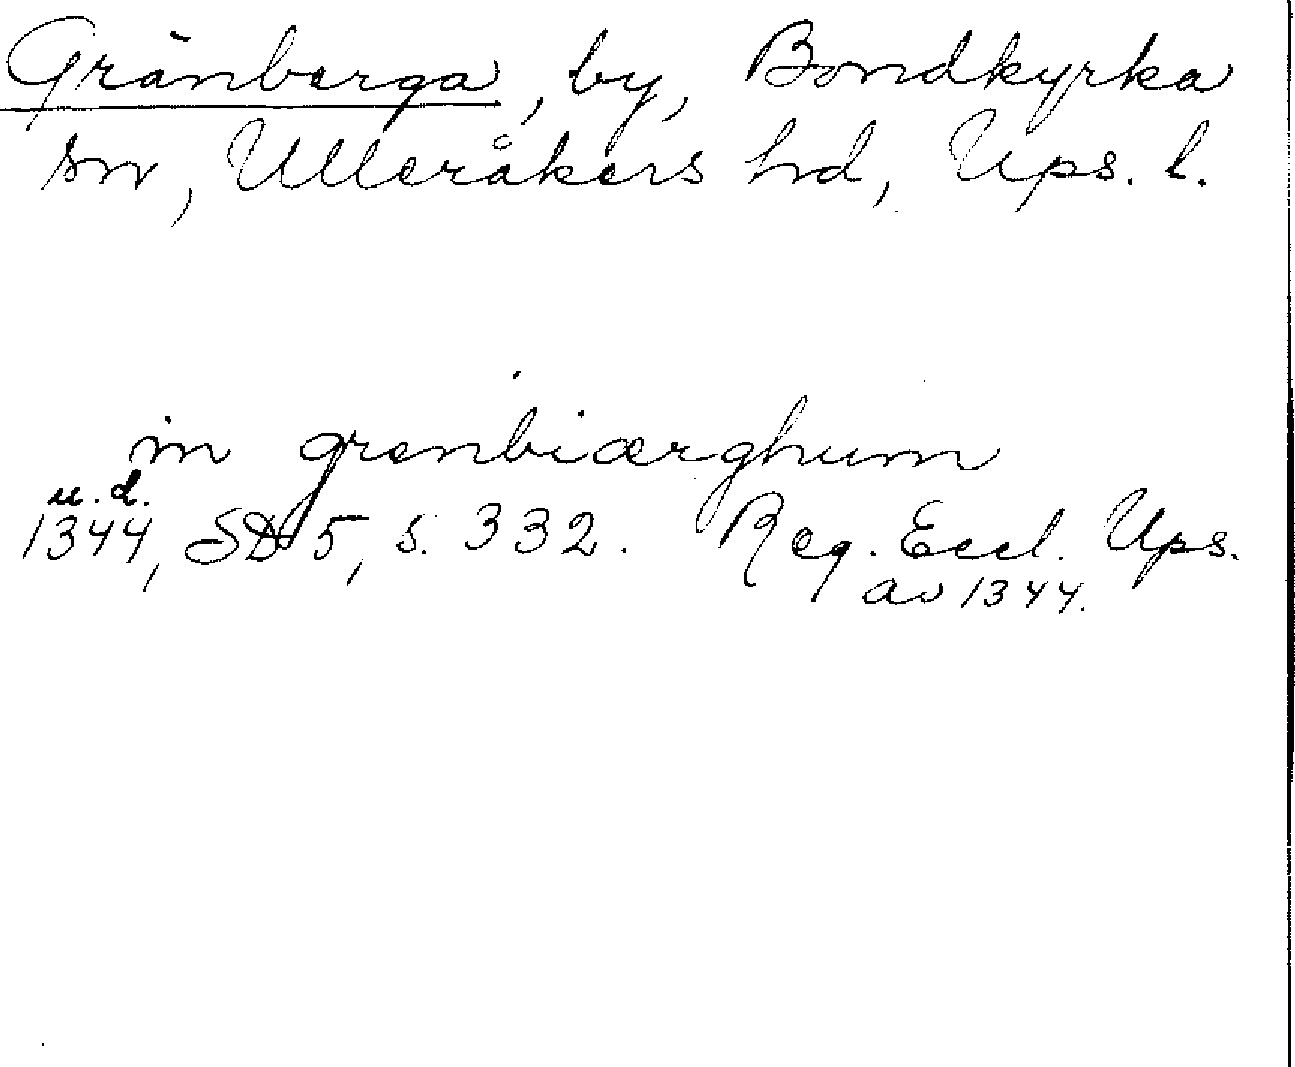 Gränberga, by, Bondkyrka
sn, Ulleråkers hd, Ups. l.
in grenbiærghum
u. d.
1344, SD 5, s. 332. Reg. Eccl. Ups.
av 1344.